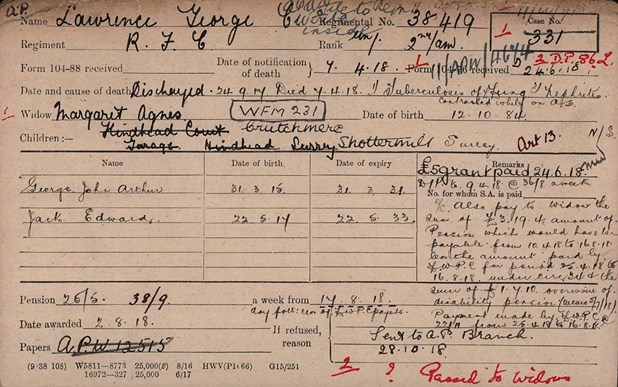 A.P.
Name Lawrence George Regimental No. 38419 Case No.
331
Regiment R. F. C Rank 2nd/am.
Form 104-88 received Date of notification of death 7. 4. 18. Form received 24.6.18. 2 D.P. 86 L.
Date and cause of death Discharged 24.9.17 Died 7.4.18. 1) Tuberculosis of 2) Nephritis
Contracted while on A.S.
1 Widow Margaret Agnes WFM 231 Date of birth 12.10.84
Hindhead Court Crutchmere
Children:— Garage Hindhead Surrey Shottermill Surrey. Art 13. N/S
Name Date of birth Date of expiry Remarks
£5 grant paid 24.6.18.
to 9.4.18 @ 36/8 a week
No. for whom S.A. is paid
George John Arthur 31. 3. 15. 31. 3. 31.
Also pay to widow the
Jack Edward, 22. 5. 17 22. 5. 33.
sum of £3.19.4 amount of
Pension which would have been
payable from 10.4.18 to 16.8.18
less the amount paid by
L.W.P.C for period 25.4.18 to
16.8.18, under circ. 24 & the
sum of £1.7.10. overissue of
disability pension
Pension 26/3. 38/9 a week from 17. 8. 18.
Payment made by L.W.P.C @
22/11 from 25.4.18 to 16.8.18.
Date awarded 2. 8. 18. If refused, reason
Sent to A.P. Branch.
28.10.18
Papers A.P.W 12515
2 2 Passed to Widows
(9·38 108) W5811—8773 25,000(2) 8/16 HWV(P1166) G15/251
16972—327 25,000 6/17